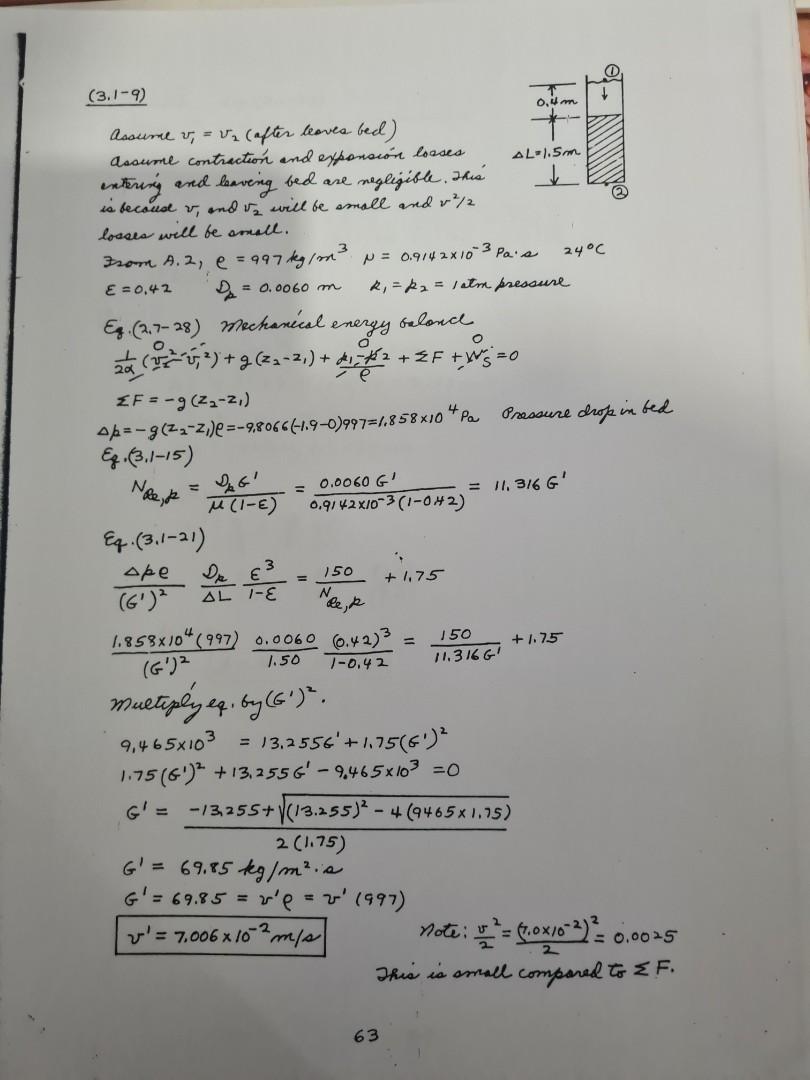 (3.1-9)
①
0.4m
ΔL=1.5m
②
Assume v₁ = v₂ (after leaves bed)
Assume contraction and expansion losses
entering and leaving bed are negligible. This
is because v₁ and v₂ will be small and v²/2
losses will be small.
From A.2, ρ = 997 kg/m³ μ = 0.9142×10⁻³ Pa·s 24°C
ε = 0.42 Dₚ = 0.0060 m p₁ = p₂ = 1 atm pressure
Eq.(2.7-28) Mechanical energy balance
0 0 0
1/2α (v₂² - v₁²) + g(z₂-z₁) + (p₁-p₂)/ρ + ΣF + Wₛ = 0
ΣF = -g(z₂-z₁)
Δp = -g(z₂-z₁)ρ = -9.8066(-1.9-0)997 = 1.858×10⁴ Pa Pressure drop in bed
Eq.(3.1-15)
N_Re,p = DₚG'/μ(1-ε) = 0.0060 G'/0.9142×10⁻³(1-0.42) = 11.316 G'
Eq.(3.1-21)
Δpρ/(G')² Dₚ/ΔL ε³/1-ε = 150/N_Re,p + 1.75
1.858×10⁴(997)/(G')² 0.0060/1.50 (0.42)³/1-0.42 = 150/11.316 G' + 1.75
Multiply eq. by (G')².
9.465×10³ = 13.255G' + 1.75(G')²
1.75(G')² + 13.255G' - 9.465×10³ = 0
G' = -13.255+√(13.255)² - 4(9465×1.75)/2(1.75)
G' = 69.85 kg/m²·s
G' = 69.85 = v'ρ = v'(997)
v' = 7.006×10⁻² m/s
Note: v²/2 = (7.0×10⁻²)²/2 = 0.0025
This is small compared to ΣF.
63